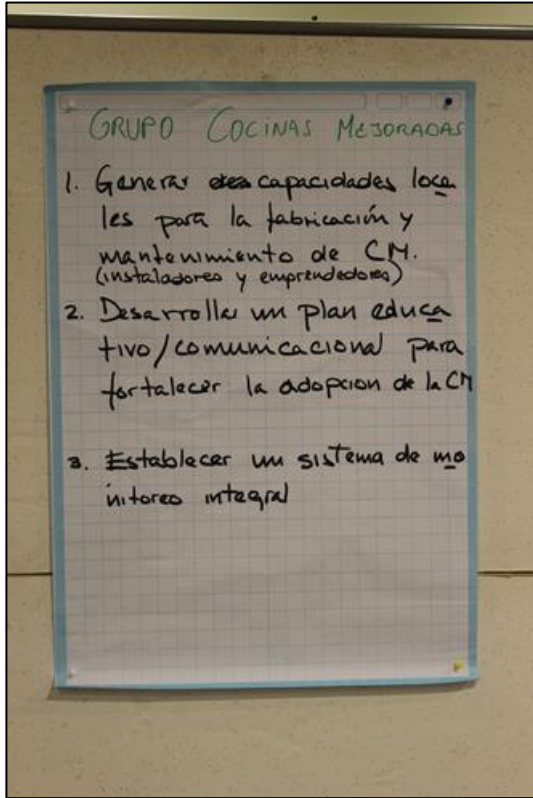 GRUPO COCINAS MEJORADAS
1. Generar capacidades loca
les para la fabricación y
mantenimiento de CM.
(instaladores y emprendedores)
2. Desarrollar un plan educa
tivo/comunicacional para
fortalecer la adopcion de la CM
3. Establecer un sistema de mo
nitoreo integral